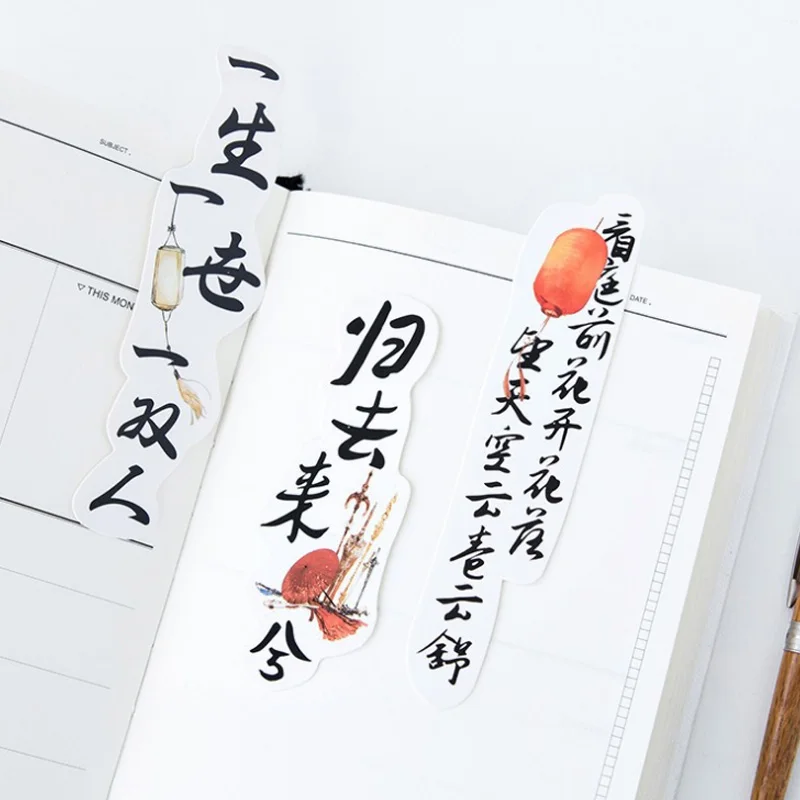 SUBJECT.
▽ THIS MON
一生
一世
一双人
归去来兮
看庭前花开花落
望天空云卷云舒
DATE.